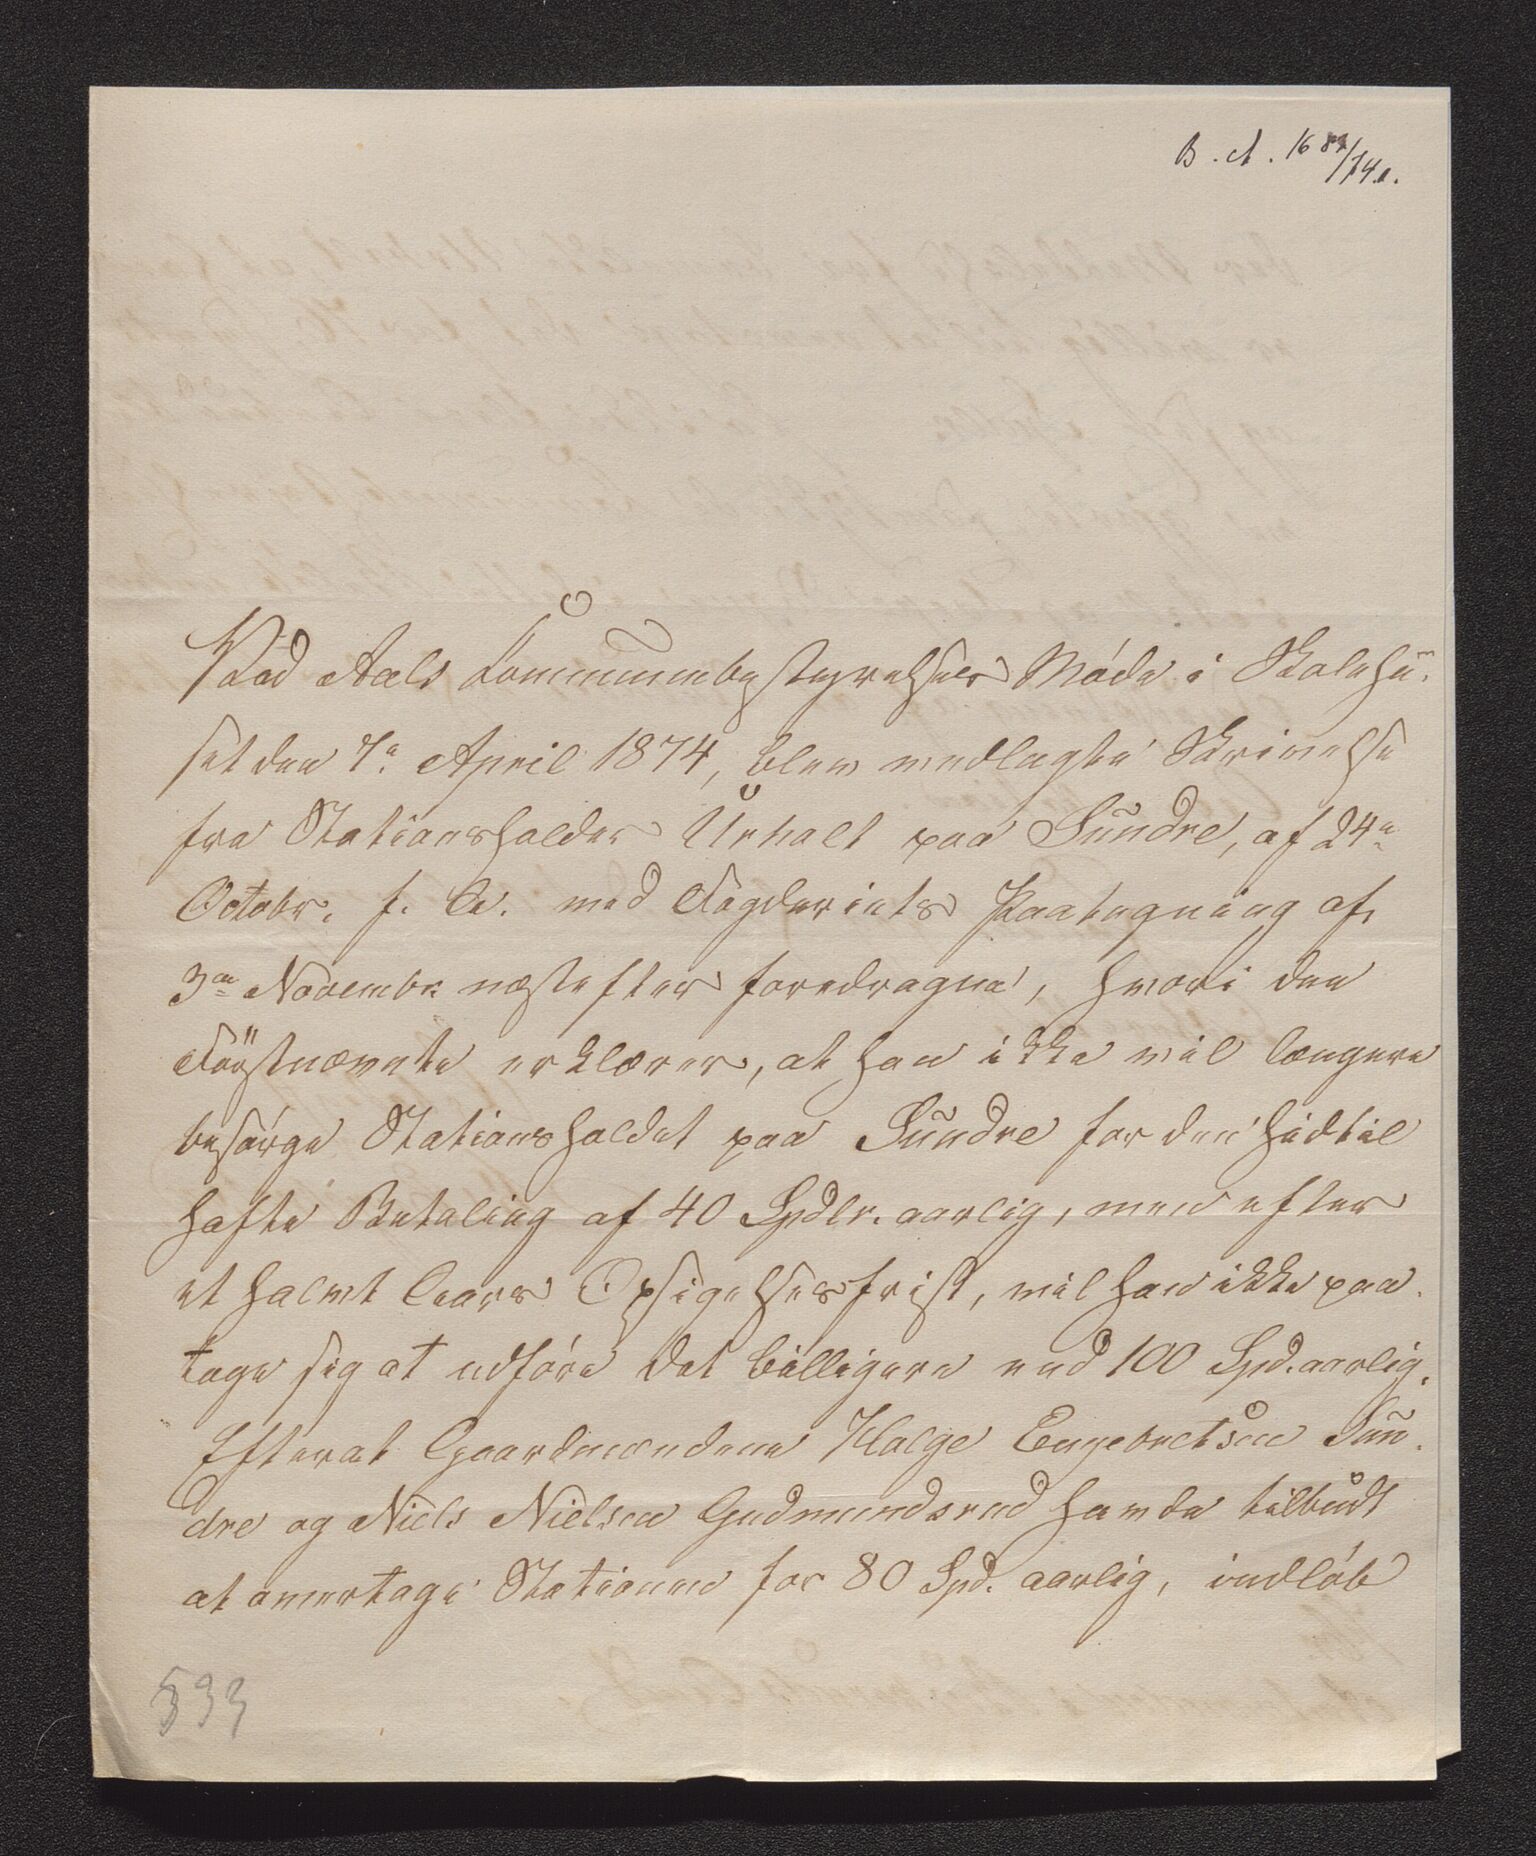 B. A. 1684/74.
Ved Aals Kommunebestyrelses Møde i Skolehu-
set den 7de April 1874, blev medlagte Skrivelse
fra Stationsholder Urhalt paa Sundre, af 24de
Octobr. f. A. med Fogderiets Paategning af
3die Novembr. næstefter foredragne, hvori den
Førstnævnte erklærer, at han ikke vil længere
besørge Stationsholdet paa Sundre for den hidtil
hafte Betaling af 40 Spdlr. aarlig, men efter
et halvt Aars Opsigelsesfrist, vil han ikke paa-
tage sig at udføre det billigere end 100 Spd. aarlig.
Efterat Gaardmændene Helge Engebretsen Sun-
dre og Niels Nielsen Gudmundsrud havde tilbudt
at overtage Stationen for 80 Spd. aarlig, indløb
533